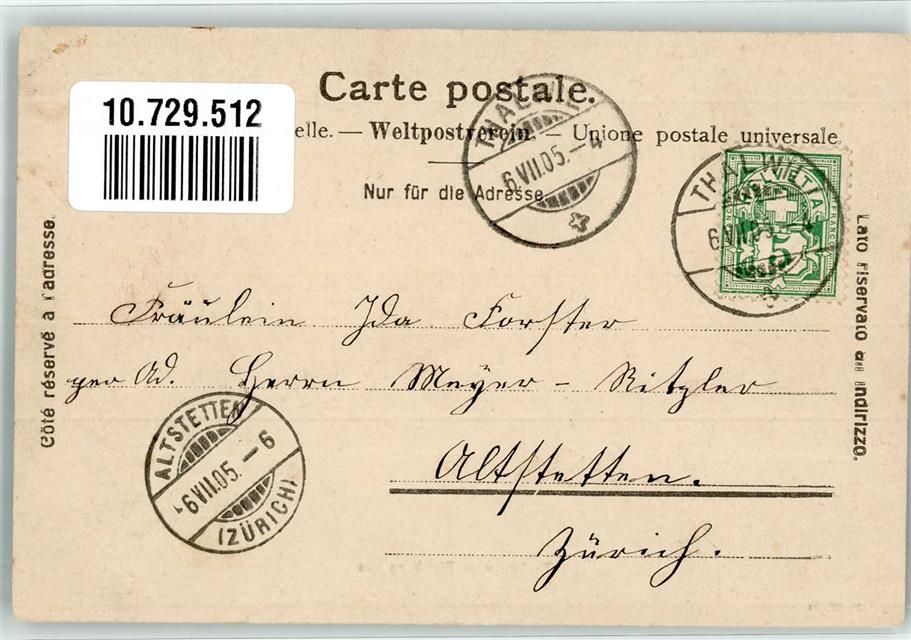 Carte postale.
10.729.512
elle. — Weltpostverein. — Unione postale universale
Nur für die Adresse
THALWIL
6.VII.05. – 4
THALWIL
6.VII.05. – 4
HELVETIA
FRANCO
5
Côté réservé à l'adresse.
Lato riservato all' indirizzo.
Fräulein Ida Forster
per Ad. Herrn Meyer - Ritzler
Altstetten.
Zürich.
ALTSTETTEN
6 VII.05. – 6
(ZÜRICH)